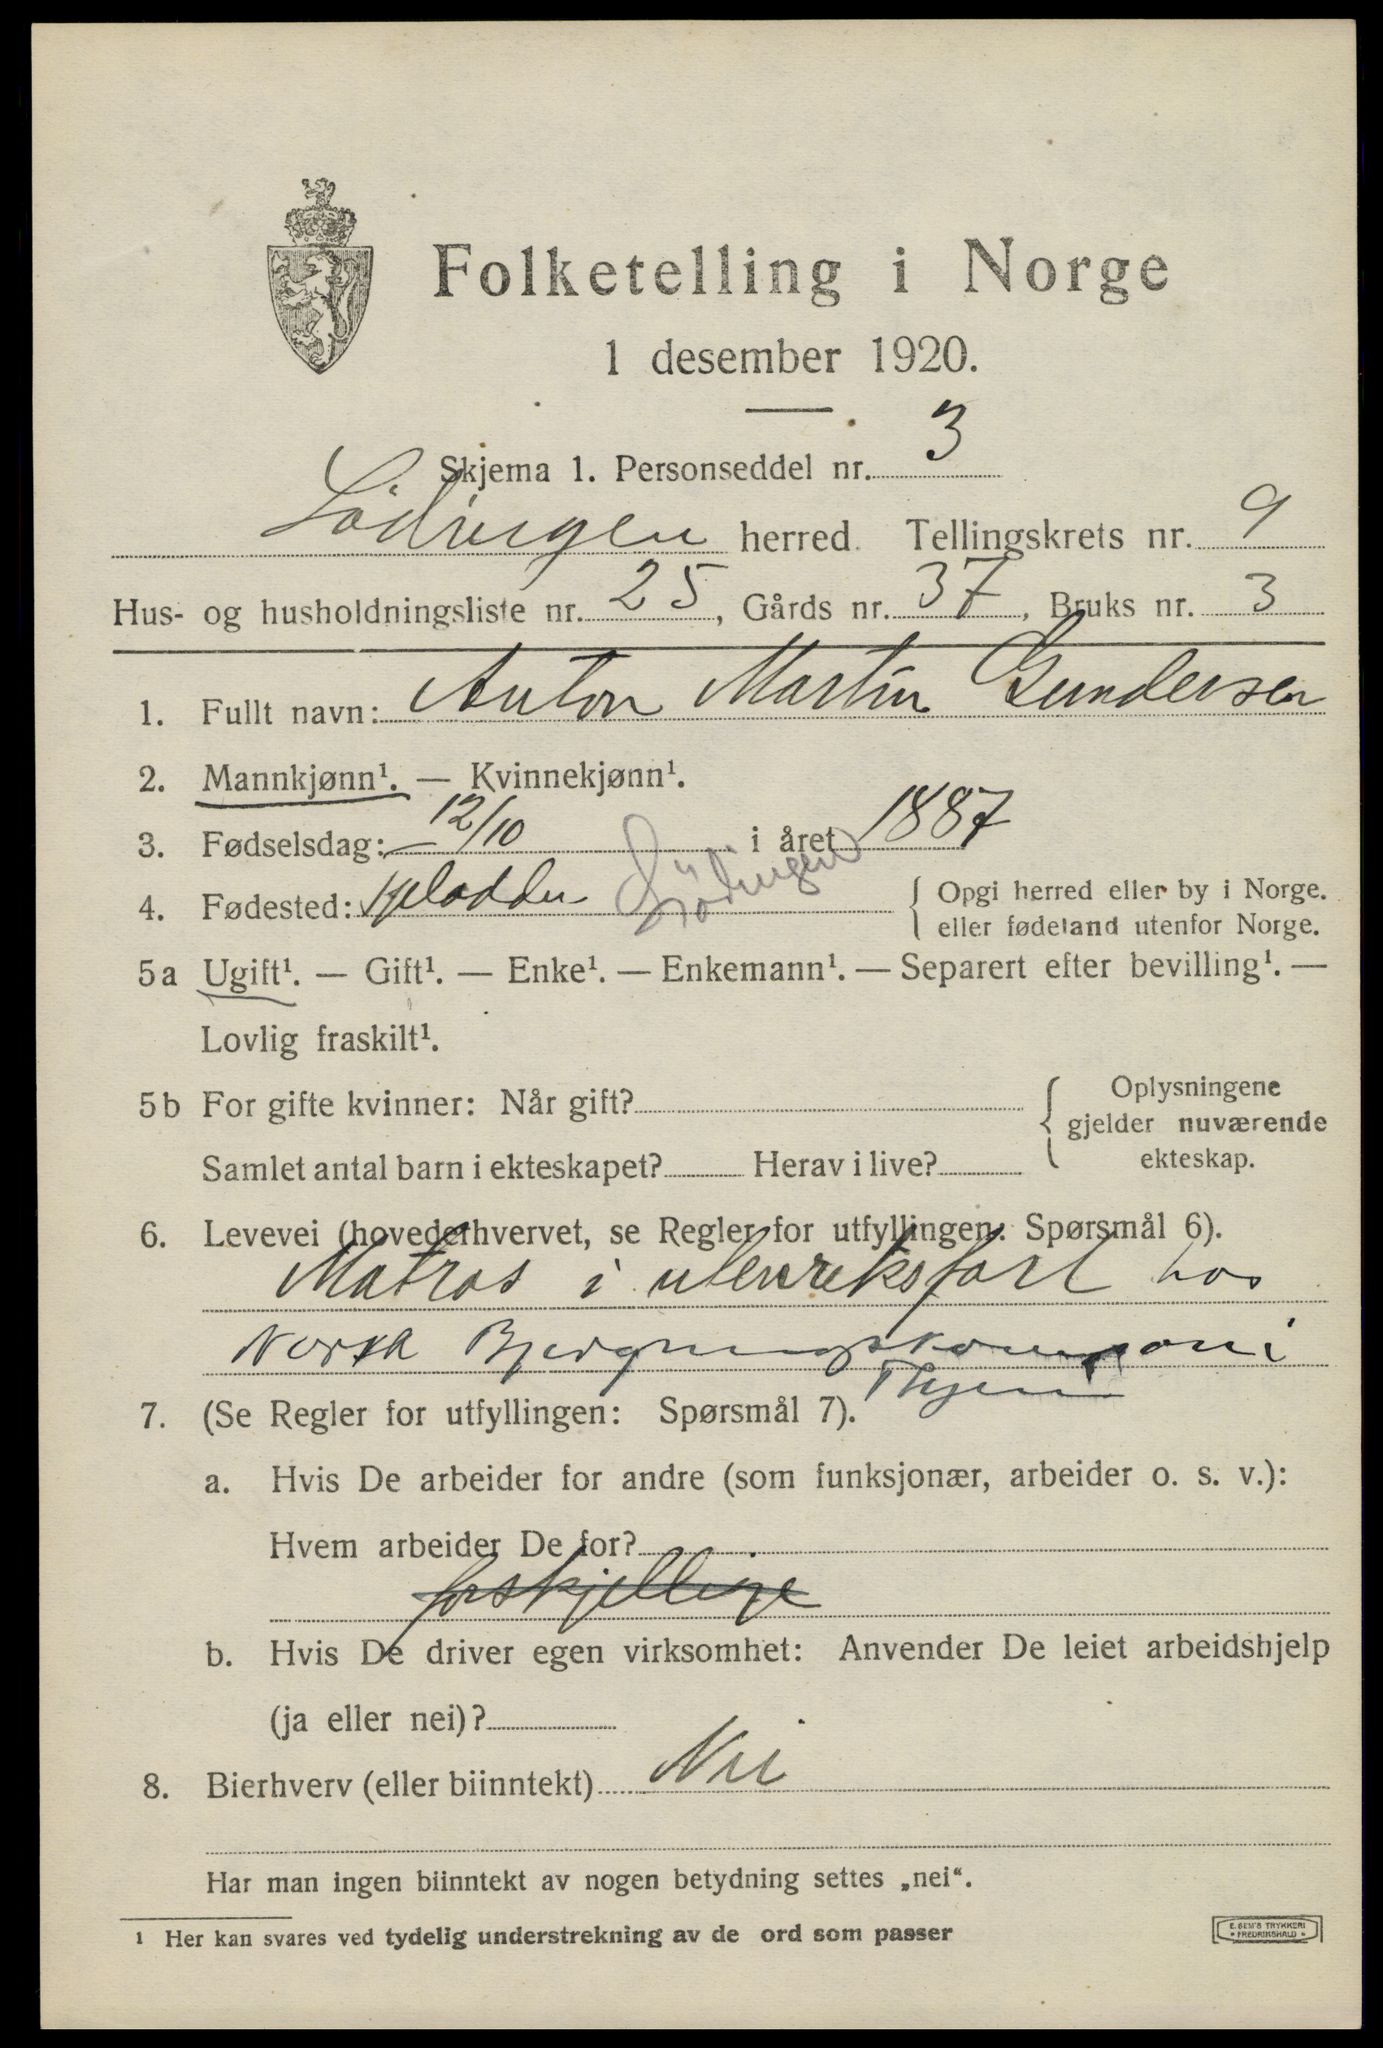 Folketelling i Norge
1 desember 1920.
Skjema 1. Personseddel nr. 3
Lödingen herred. Tellingskrets nr. 9
Hus- og husholdningsliste nr. 25, Gårds nr. 37, Bruks nr. 3
1. Fullt navn: Anton Martin Gundersen
2. Mannkjønn¹. — Kvinnekjønn¹.
3. Fødselsdag: 12/10 i året 1887
4. Fødested: Lödingen { Opgi herred eller by i Norge.
eller fødeland utenfor Norge.
5a Ugift¹. — Gift¹. — Enke¹. — Enkemann¹. — Separert efter bevilling¹. —
Lovlig fraskilt¹.
5b For gifte kvinner: Når gift? { Oplysningene
gjelder nuværende
Samlet antal barn i ekteskapet? Herav i live? ekteskap.
6. Levevei (hovederhvervet, se Regler for utfyllingen: Spørsmål 6).
Matros i utenriksfart hos
Norsk Bjergningskompani
7. (Se Regler for utfyllingen: Spørsmål 7).
a. Hvis De arbeider for andre (som funksjonær, arbeider o. s. v.):
Hvem arbeider De for?
forskjellige
b. Hvis De driver egen virksomhet: Anvender De leiet arbeidshjelp
(ja eller nei)?
8. Bierhverv (eller biinntekt) Nei
Har man ingen biinntekt av nogen betydning settes „nei“.
¹ Her kan svares ved tydelig understrekning av de ord som passer
E. SEM'S TRYKKERI
FREDRIKSHALD